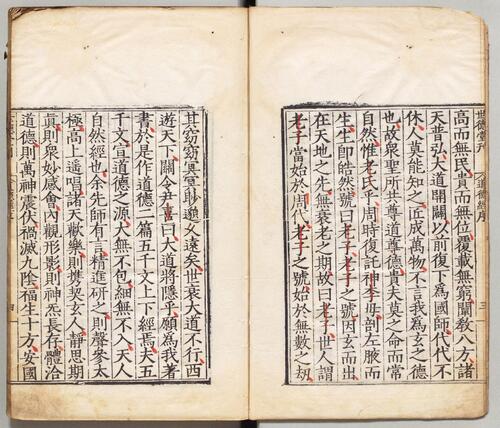 世德堂刊
道德經序
三
高而無民貴而無位覆載無窮闡教八方諸
天普弘大道開闢以前復下為國師代代不
休人莫能知之匠成萬物不言我為玄之德
也故衆聖所共尊道尊德貴夫莫之命而常
自然惟老氏乎周時復託神李母剖左腋而
生生即皓然號曰老子老子之號因玄而出
在天地之先無衰老之期故曰老子世人謂
老子當始於周代老子之號始於無數之劫
其窈窈冥冥眇邈久遠矣世衰大道不行西
遊天下關令尹喜曰大道將隱乎願為我著
書於是作道德二篇五千文上下經焉夫五
千文宣道德之源大無不包細無不入天人
自然經也余先師有言精進研之則聲參太
極高上遥唱諸天歡樂則携契玄人静思期
真則衆妙感會内觀形影則神炁長存體洽
道德則萬神震伏禍滅九陰福生十方安國
四